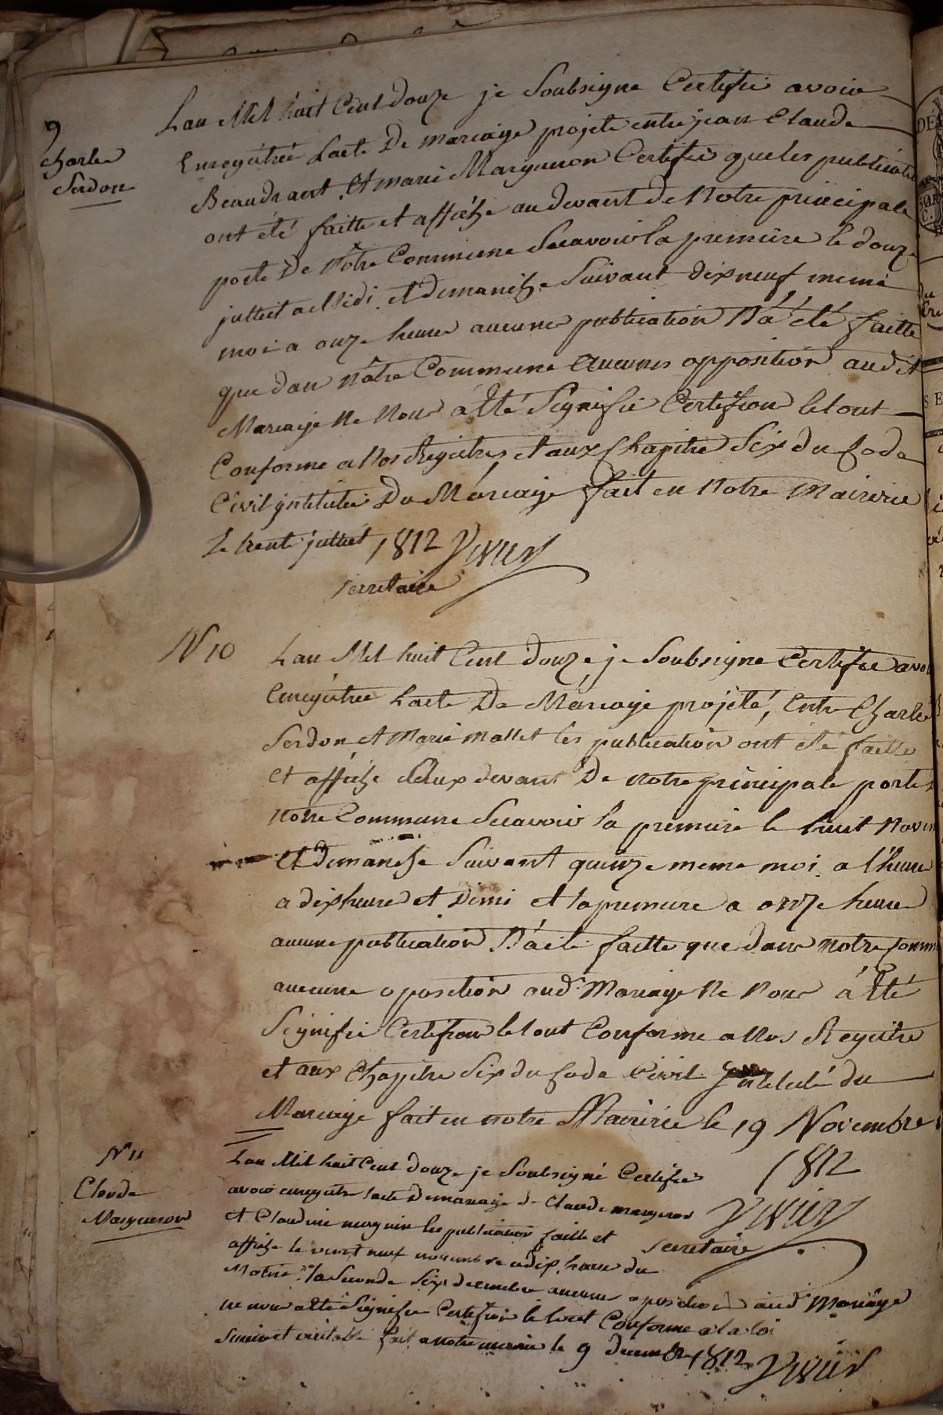 9
Charles
Serdon
Lan Mil huit Cent douze je Soubsigne Certifie avoir
Enregistré Lacte De mariage projeté entre jean Claude
Beaudraert Et marie Marguron Certifie que les publication
ont été faitte et affiche au devant De Notre principale
porte De Nôtre Commune Scavoir la première le douze
juillet a Midi et dimanche Suivant dix neuf meme
moi a onze heure aucune publication Na été faitte
que dans nôtre Commune aucunes opposition audit
Mariage Ne Nous a Eté Signifié Certifion le tout
Conforme a Nos Registres et aux Chapitre Six du Code
Civil jntitulée Du Mariage fait en Notre Mairerie
Le trente juillet 1812 Vivier
secretaire
N 10
Lan Mil huit Cent douze je Soubsigne Certifie avoir
Enregistrée Lacte De Mariage projeté, Entre Charle
Serdon et Marie Mallet les publication ont été faitte
et affiche deux devant De notre principale porte
notre Commune Scavoir la premiere le huit Novem
et dimanche Suivant quinze meme moi a l'heure
a dix heure et Demi et la premiere a onze heure
aucune publication Na été faitte que dans notre Comm
aucunne oposition aud Mariage Ne Nous a Eté
Signifié Certifion le tout Conforme a Nos Registre
et aux Chapitre Six du Code Civil Jntitulé du
Mariage fait en notre Mairerie le 19 Novembre
1812
Vivier
secretaire
N 11
Claude
Marguron
Lan Mil huit Cent douze je Soubsigné Certifie
avoir enregistre lacte De mariage de Claude marguron
et Claudine murguin les publication faitte et
affiche le vingt neuf novembre a dix heure du
Matin la Seconde Six decembre aucune oposition aud Mariage
ne nous a Eté Signifie Certifion le tout Conforme a la loi
Sincere et veritable fait a notre mairie le 9 decembre 1812 Vivier